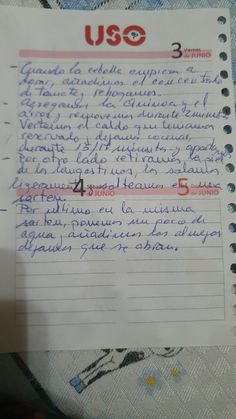 USO
3 viernes
de JUNIO
- Cuando la cebolla empieza a
dorar, añadimos el concentrado
de tomate, rehogamos.
Agregamos la quinoa y el
arroz, removemos durante 2 minutos
Vertemos el caldo que teniamos
reservado, dejamos cocinar
durante 15/17 minutos y apartamos
- Por otro lado retiramos la piel
de los langostinos, los salamos
ligeramente salteamos en una
4 5
de JUNIO
sarten.
- Por ultimo en la misma
sarten, ponemos un poco de
agua, añadimos las almejas
dejamos que se abran.